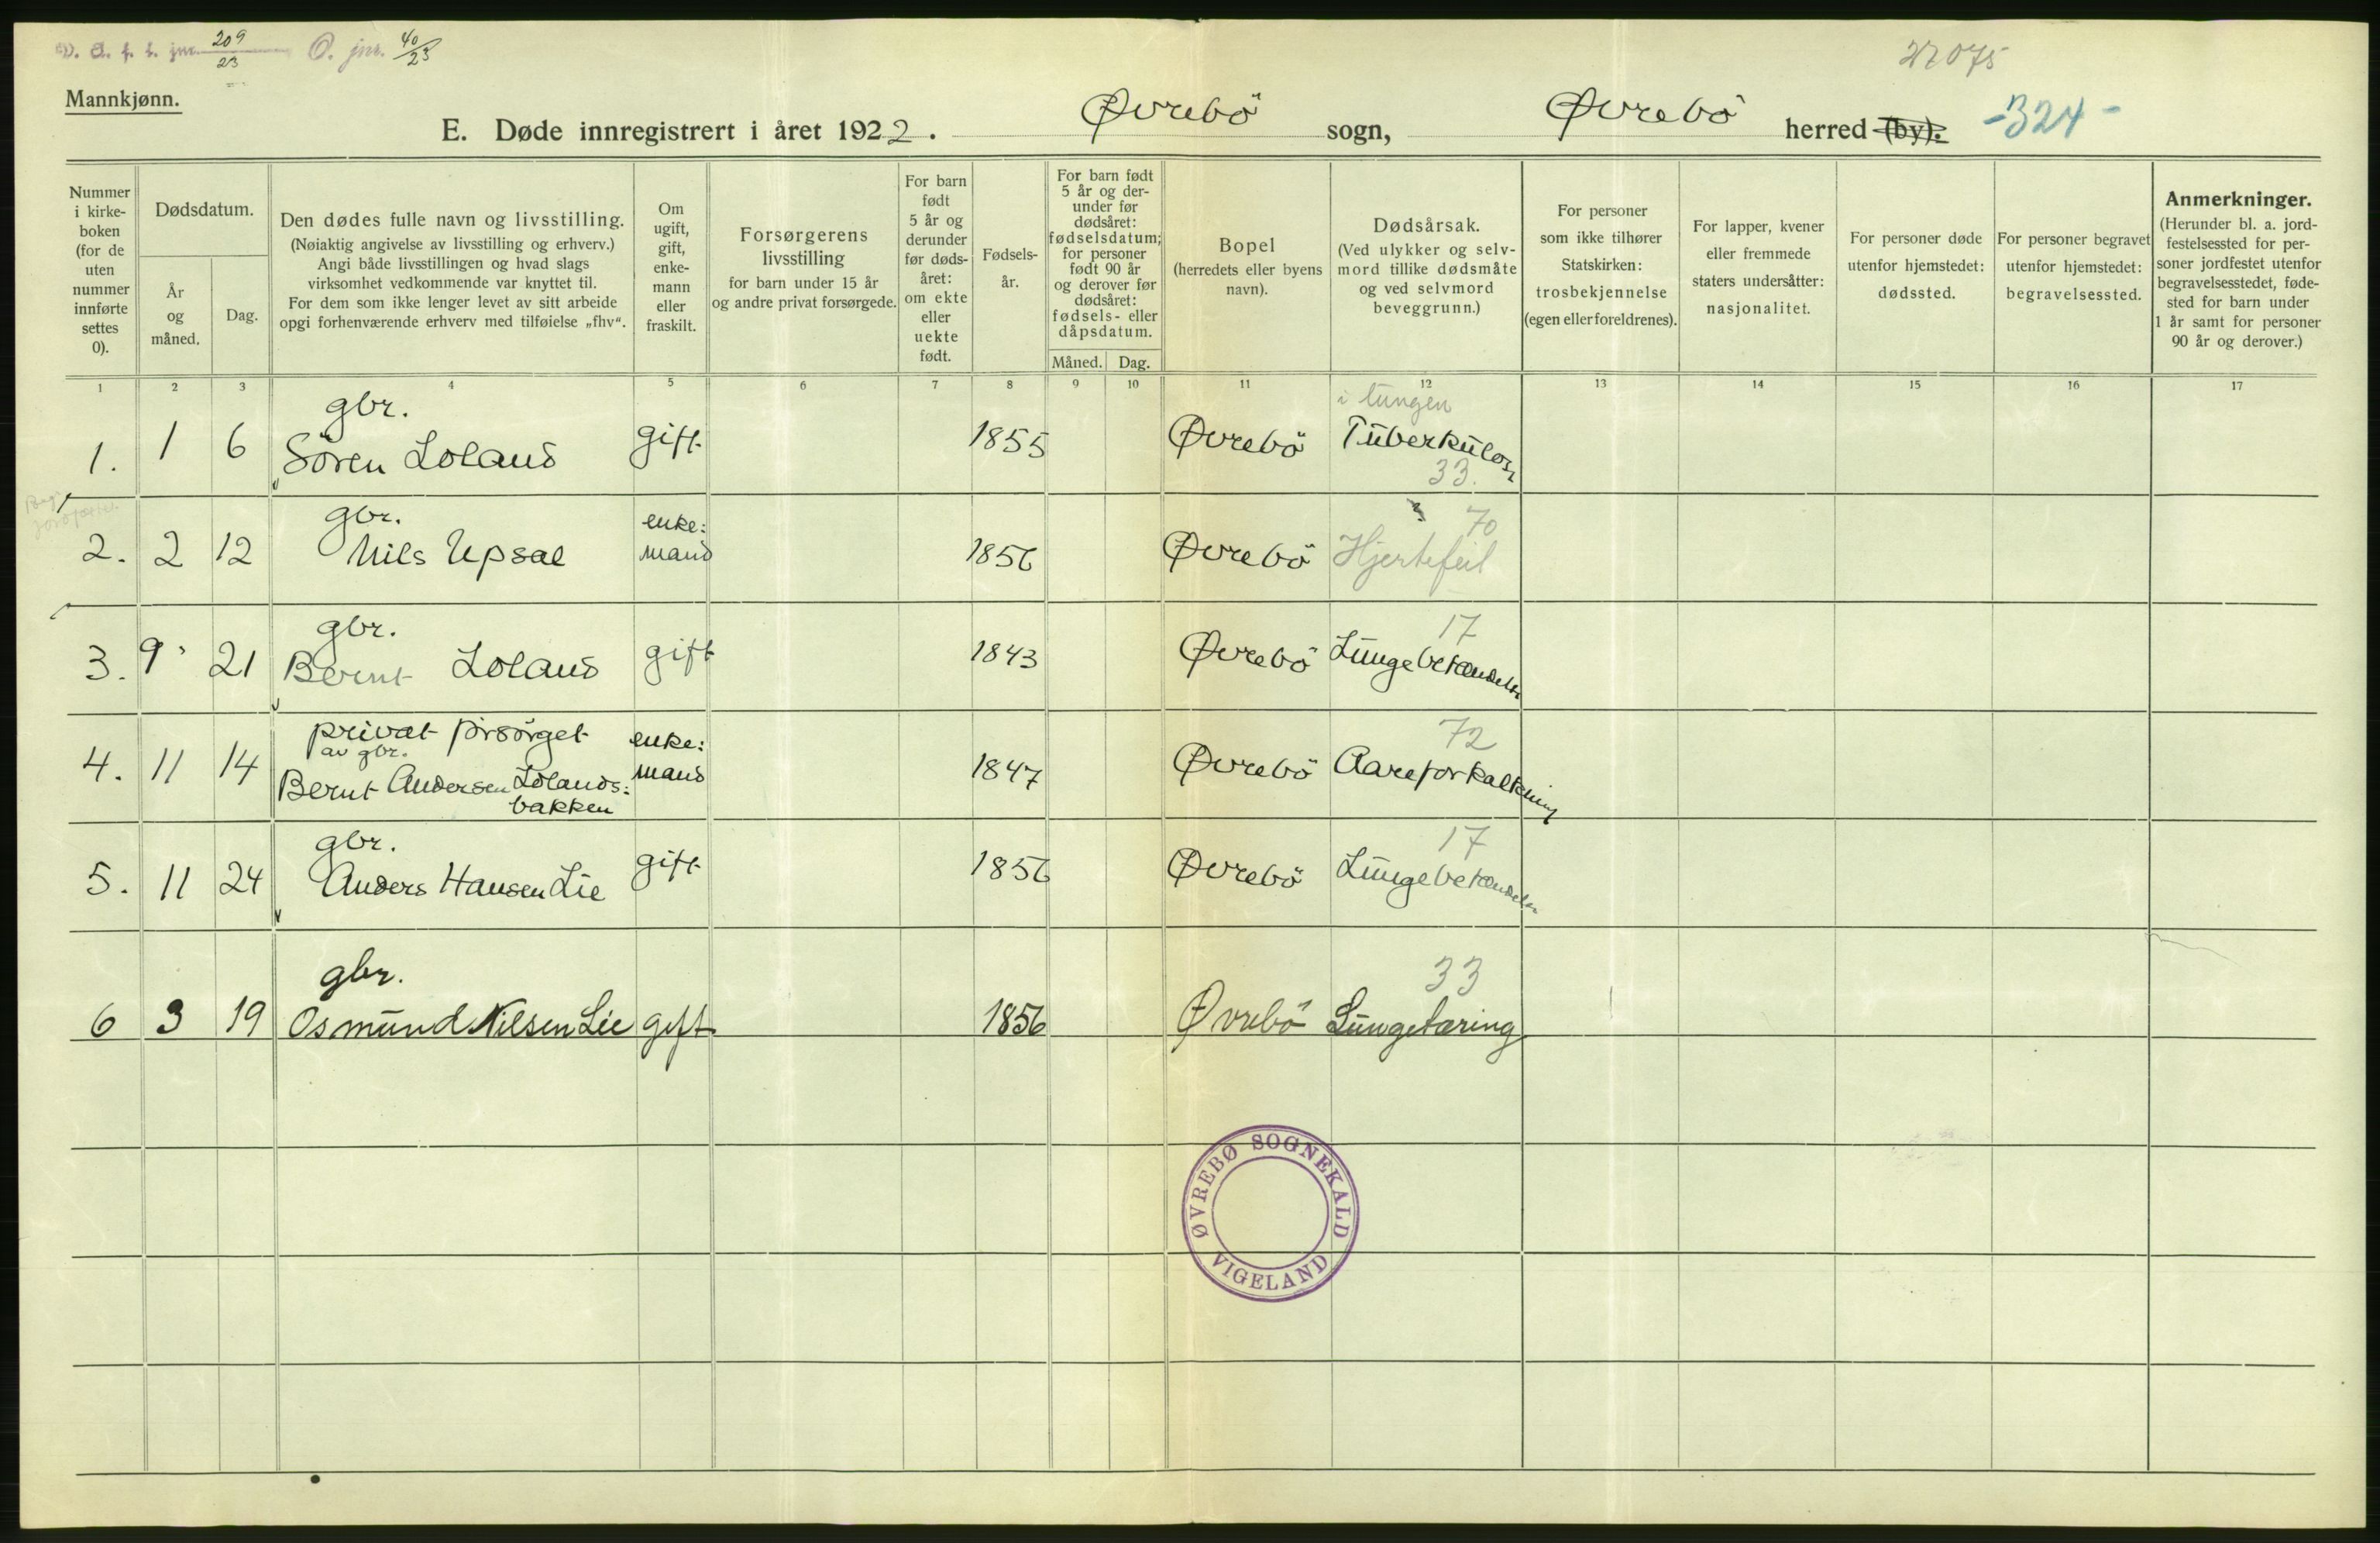 D. d. f. f. jnr. 209/23 O. jnr. 40/23
22075
Mannkjønn.
E. Døde innregistrert i året 1922. Øvrebö sogn, Øvrebö herred (by). -324-
Nummer i kirke- boken (for de uten nummer innførte settes 0).
Dødsdatum.
År og måned.
Dag.
Den dødes fulle navn og livsstilling.
(Nøiaktig angivelse av livsstilling og erhverv.)
Angi både livsstillingen og hvad slags
virksomhet vedkommende var knyttet til.
For dem som ikke lenger levet av sitt arbeide
opgi forhenværende erhverv med tilføielse „fhv“.
Om ugift, gift, enke- mann eller fraskilt.
Forsørgerens
livsstilling
for barn under 15 år
og andre privat forsørgede.
For barn født 5 år og derunder før døds- året: om ekte eller uekte født.
Fødsels- år.
For barn født 5 år og der- under før dødsåret: fødselsdatum; for personer født 90 år og derover før dødsåret: fødsels- eller dåpsdatum.
Måned. Dag.
Bopel
(herredets eller byens
navn).
Dødsårsak.
(Ved ulykker og selv-
mord tillike dødsmåte
og ved selvmord
beveggrunn.)
For personer
som ikke tilhører
Statskirken:
trosbekjennelse
(egen eller foreldrenes).
For lapper, kvener
eller fremmede
staters undersåtter:
nasjonalitet.
For personer døde
utenfor hjemstedet:
dødssted.
For personer begravet
utenfor hjemstedet:
begravelsessted.
Anmerkninger.
(Herunder bl. a. jord-
festelsessted for per-
soner jordfestet utenfor
begravelsesstedet, føde-
sted for barn under
1 år samt for personer
90 år og derover.)
1 2 3 4 5 6 7 8 9 10 11 12 13 14 15 16 17
gbr. i lungen
1. 1 6 Sören Loland gift 1855 Øvrebö Tuberkulose
33.
gbr. enke: 70
2. 2 12 Nils Upsal mand 1856 Øvrebö Hjertefeil
gbr. 17
3. 9 21 Bernt Loland gift 1843 Øvrebö Lungebetændelse
privat forsörget enke: 72
av gbr.
4. 11 14 Bernt Andersen Lolands: mand 1847 Øvrebö Aareforkalkning
bakken
gbr. 17
5. 11 24 Anders Hansen Lie gift 1856 Øvrebö Lungebetændelse
gbr. 33
6 3 19 Osmund Nilsen Lie gift 1856 Øvrebö Lungetæring
ØVREBØ SOGNEKALD
VIGELAND